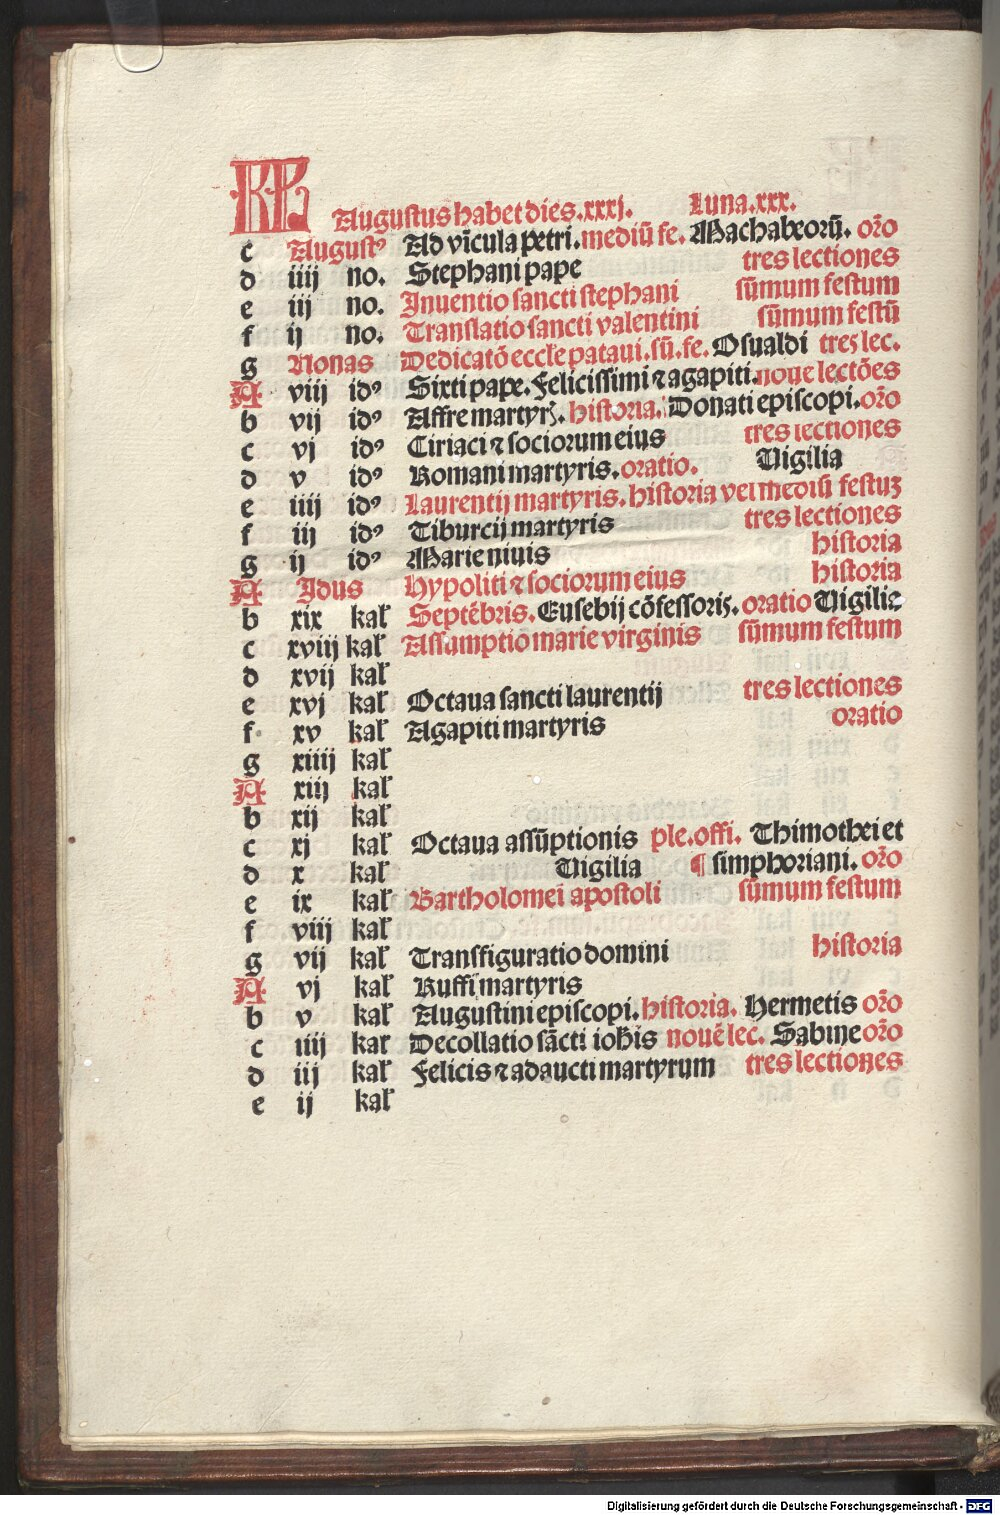 KL Augustus habet dies .xxxj. Luna .xxx.
c Augustꝰ Ad vīcula petri. mediū fe. Machabeorū. oro̅
d iiij no. Stephani pape tres lectiones
e iij no. Inuentio sancti stephani sūmum festum
f ij no. Translatio sancti valentini sūmum festū
g Nonas Dedicatō eccl'e pataui. sū. fe. Osualdi tres lec.
A viij idꝰ Sixti pape. Felicissimi ⁊ agapiti. noue lectōes
b vij idꝰ Affre martyrꝭ. historia. Donati episcopi. oro̅
c vj idꝰ Ciriaci ⁊ sociorum eius tres lectiones
d v idꝰ Romani martyris. oratio. Vigilia
e iiij idꝰ Laurentij martyris. historia vel mediū festuꝫ
f iij idꝰ Tiburcij martyris tres lectiones
g ij idꝰ Marie niuis historia
A Idus Hypoliti ⁊ sociorum eius historia
b xix kal' Septēbris. Eusebij cōfessoris. oratio Vigilia
c xviij kal' Assumptio marie virginis sūmum festum
d xvij kal'
e xvj kal' Octaua sancti laurentij tres lectiones
f xv kal' Agapiti martyris oratio
g xiiij kal'
A xiij kal'
b xij kal'
c xj kal' Octaua assūptionis ple. offi. Thimothei et
d x kal' Vigilia ¶ simphoriani. oro̅
e ix kal' Bartholomei apostoli sūmum festum
f viij kal'
g vij kal' Transfiguratio domini historia
A vj kal' Ruffi martyris
b v kal' Augustini episcopi. historia. Hermetis oro̅
c iiij kal' Decollatio sācti ioh̅is nouē lec. Sabine oro̅
d iij kal' Felicis ⁊ adaucti martyrum tres lectiones
e ij kal'
Digitalisierung gefördert durch die Deutsche Forschungsgemeinschaft - DFG